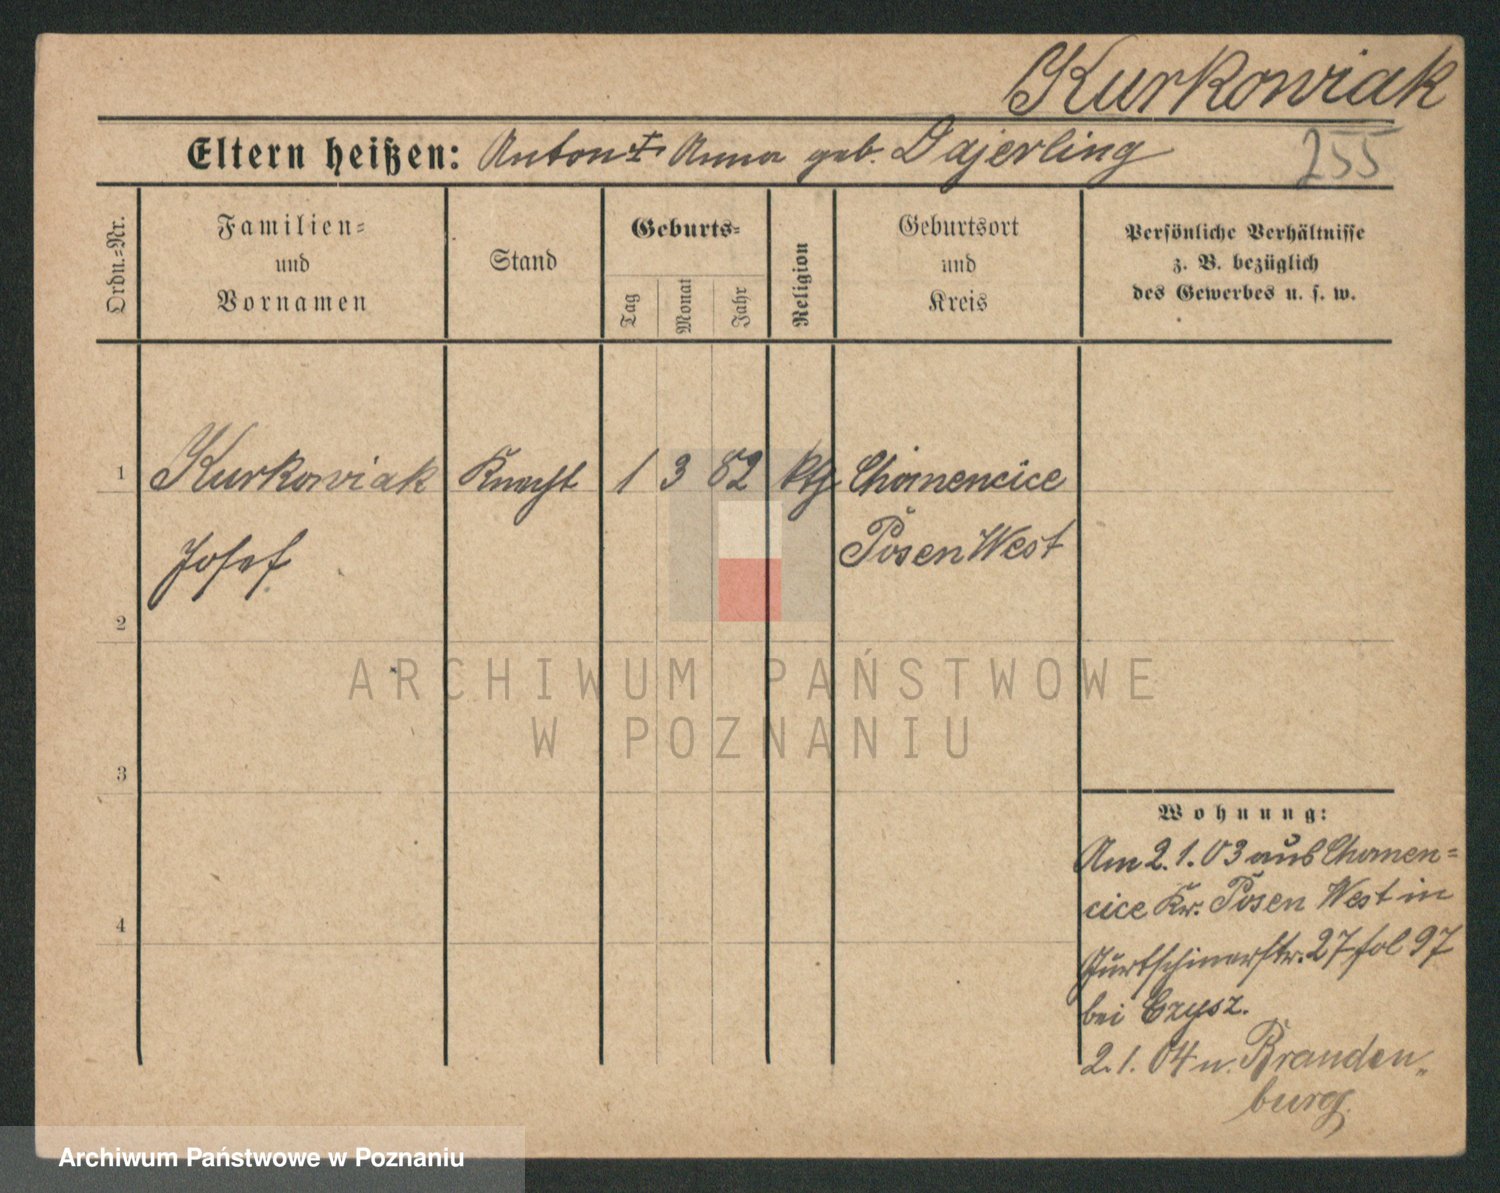 Kurkowiak
255
Eltern heißen: Anton ‡ Anna geb. Dajerling
Ordn.=Nr.
Familien=
und
Vornamen
Stand
Geburts=
Tag
Monat
Jahr
Religion
Geburtsort
und
Kreis
Persönliche Verhältnisse
z. B. bezüglich
des Gewerbes u. s. w.
1 Kurkowiak Knecht 1 3 82 ktg Chomencice
Josef Posen West
2
ARCHIWUM PAŃSTWOWE
W POZNANIU
3
Wohnung:
Am 2.1.03 aus Chomen=
cice Kr. Posen West in
27 fol 97
4
bei Czysz.
2.1.04 n. Branden„
burg.
Archiwum Państwowe w Poznaniu